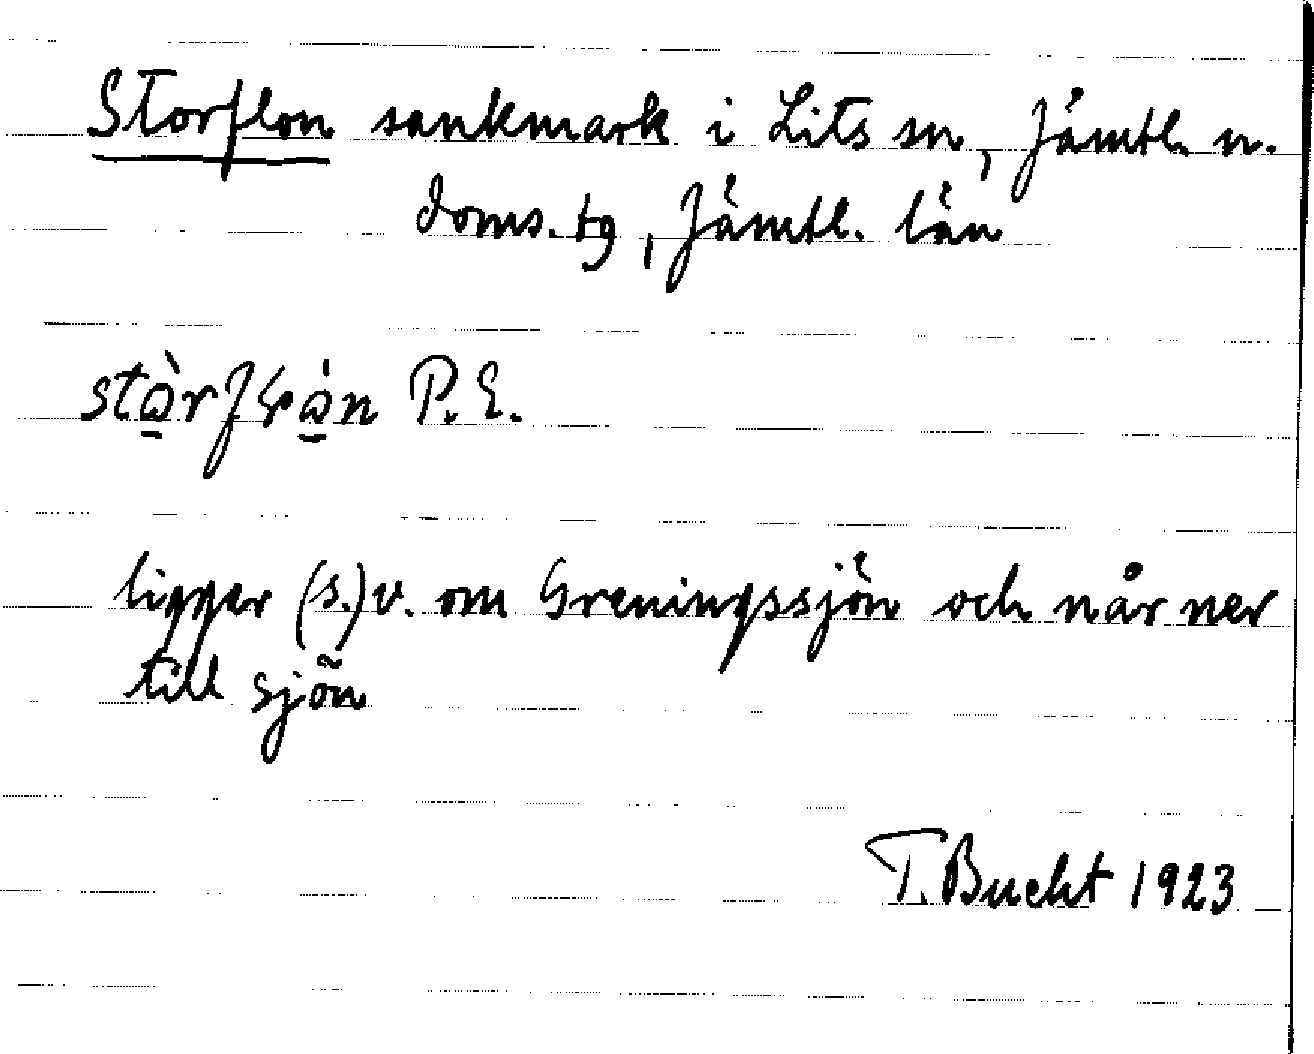 Storflon sankmark i Lits sn, Jämtl. n.
doms. tg, Jämtl. län
P. E.
ligger (s.)v. om Greningssjön och når ner
till sjön
T. Bucht 1923